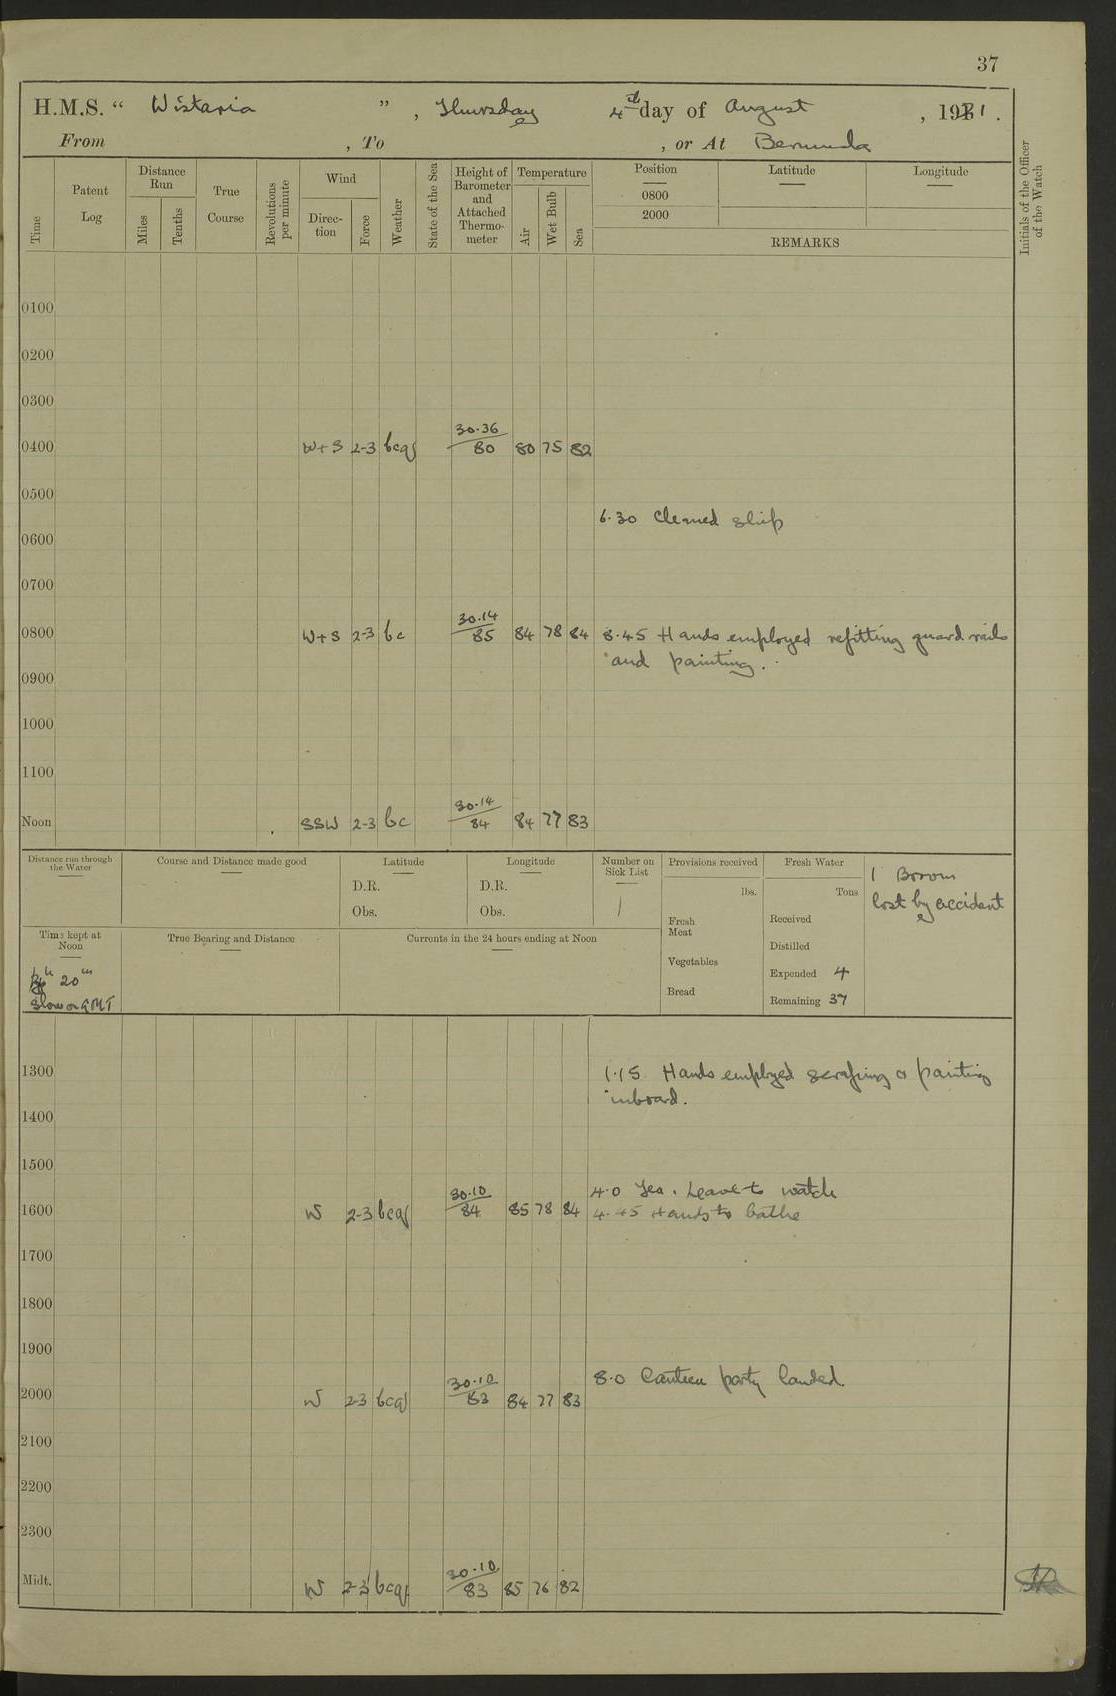 37
H.M.S. “ Wistaria ” , Thursday 4th day of August , 1921 .
From , To , or At Bermuda
Time
Patent Log
Distance Run
Miles
Tenths
True Course
Revolutions per minute
Wind
Direction
Force
Weather
State of the Sea
Height of Barometer and Attached Thermometer
Temperature
Air
Wet Bulb
Sea
Position
Latitude
Longitude
0800
2000
REMARKS
Initials of the Officer of the Watch
0100
0200
0300
0400 W+S 2-3 bcq 30.36 80 80 75 82
0500
6.30 Cleaned ship
0600
0700
0800 W+S 2-3 bc 30.14 85 84 78 84 8.45 Hands employed refitting guard rails
and painting.
0900
1000
1100
Noon SSW 2-3 bc 30.14 84 84 77 83
Distance run through the Water
Course and Distance made good
Latitude
D.R.
Obs.
Longitude
D.R.
Obs.
Number on Sick List
1
Provisions received
lbs.
Fresh Meat
Vegetables
Bread
Fresh Water
Tons
Received
Distilled
Expended 4
Remaining 37
1 Broom
lost by accident
Time kept at Noon
4h 20m
slow on GMT
True Bearing and Distance
Currents in the 24 hours ending at Noon
1300 1.15 Hands employed scraping & painting
inboard.
1400
1500
4.0 Tea. Leave to watch
1600 W 2-3 bcq 30.10 84 85 78 84 4.45 Hands to bathe
1700
1800
1900
8.0 Canteen party landed
2000 W 2-3 bcq 30.10 83 84 77 83
2100
2200
2300
Midt. W 2-3 bcq 30.10 83 85 76 82